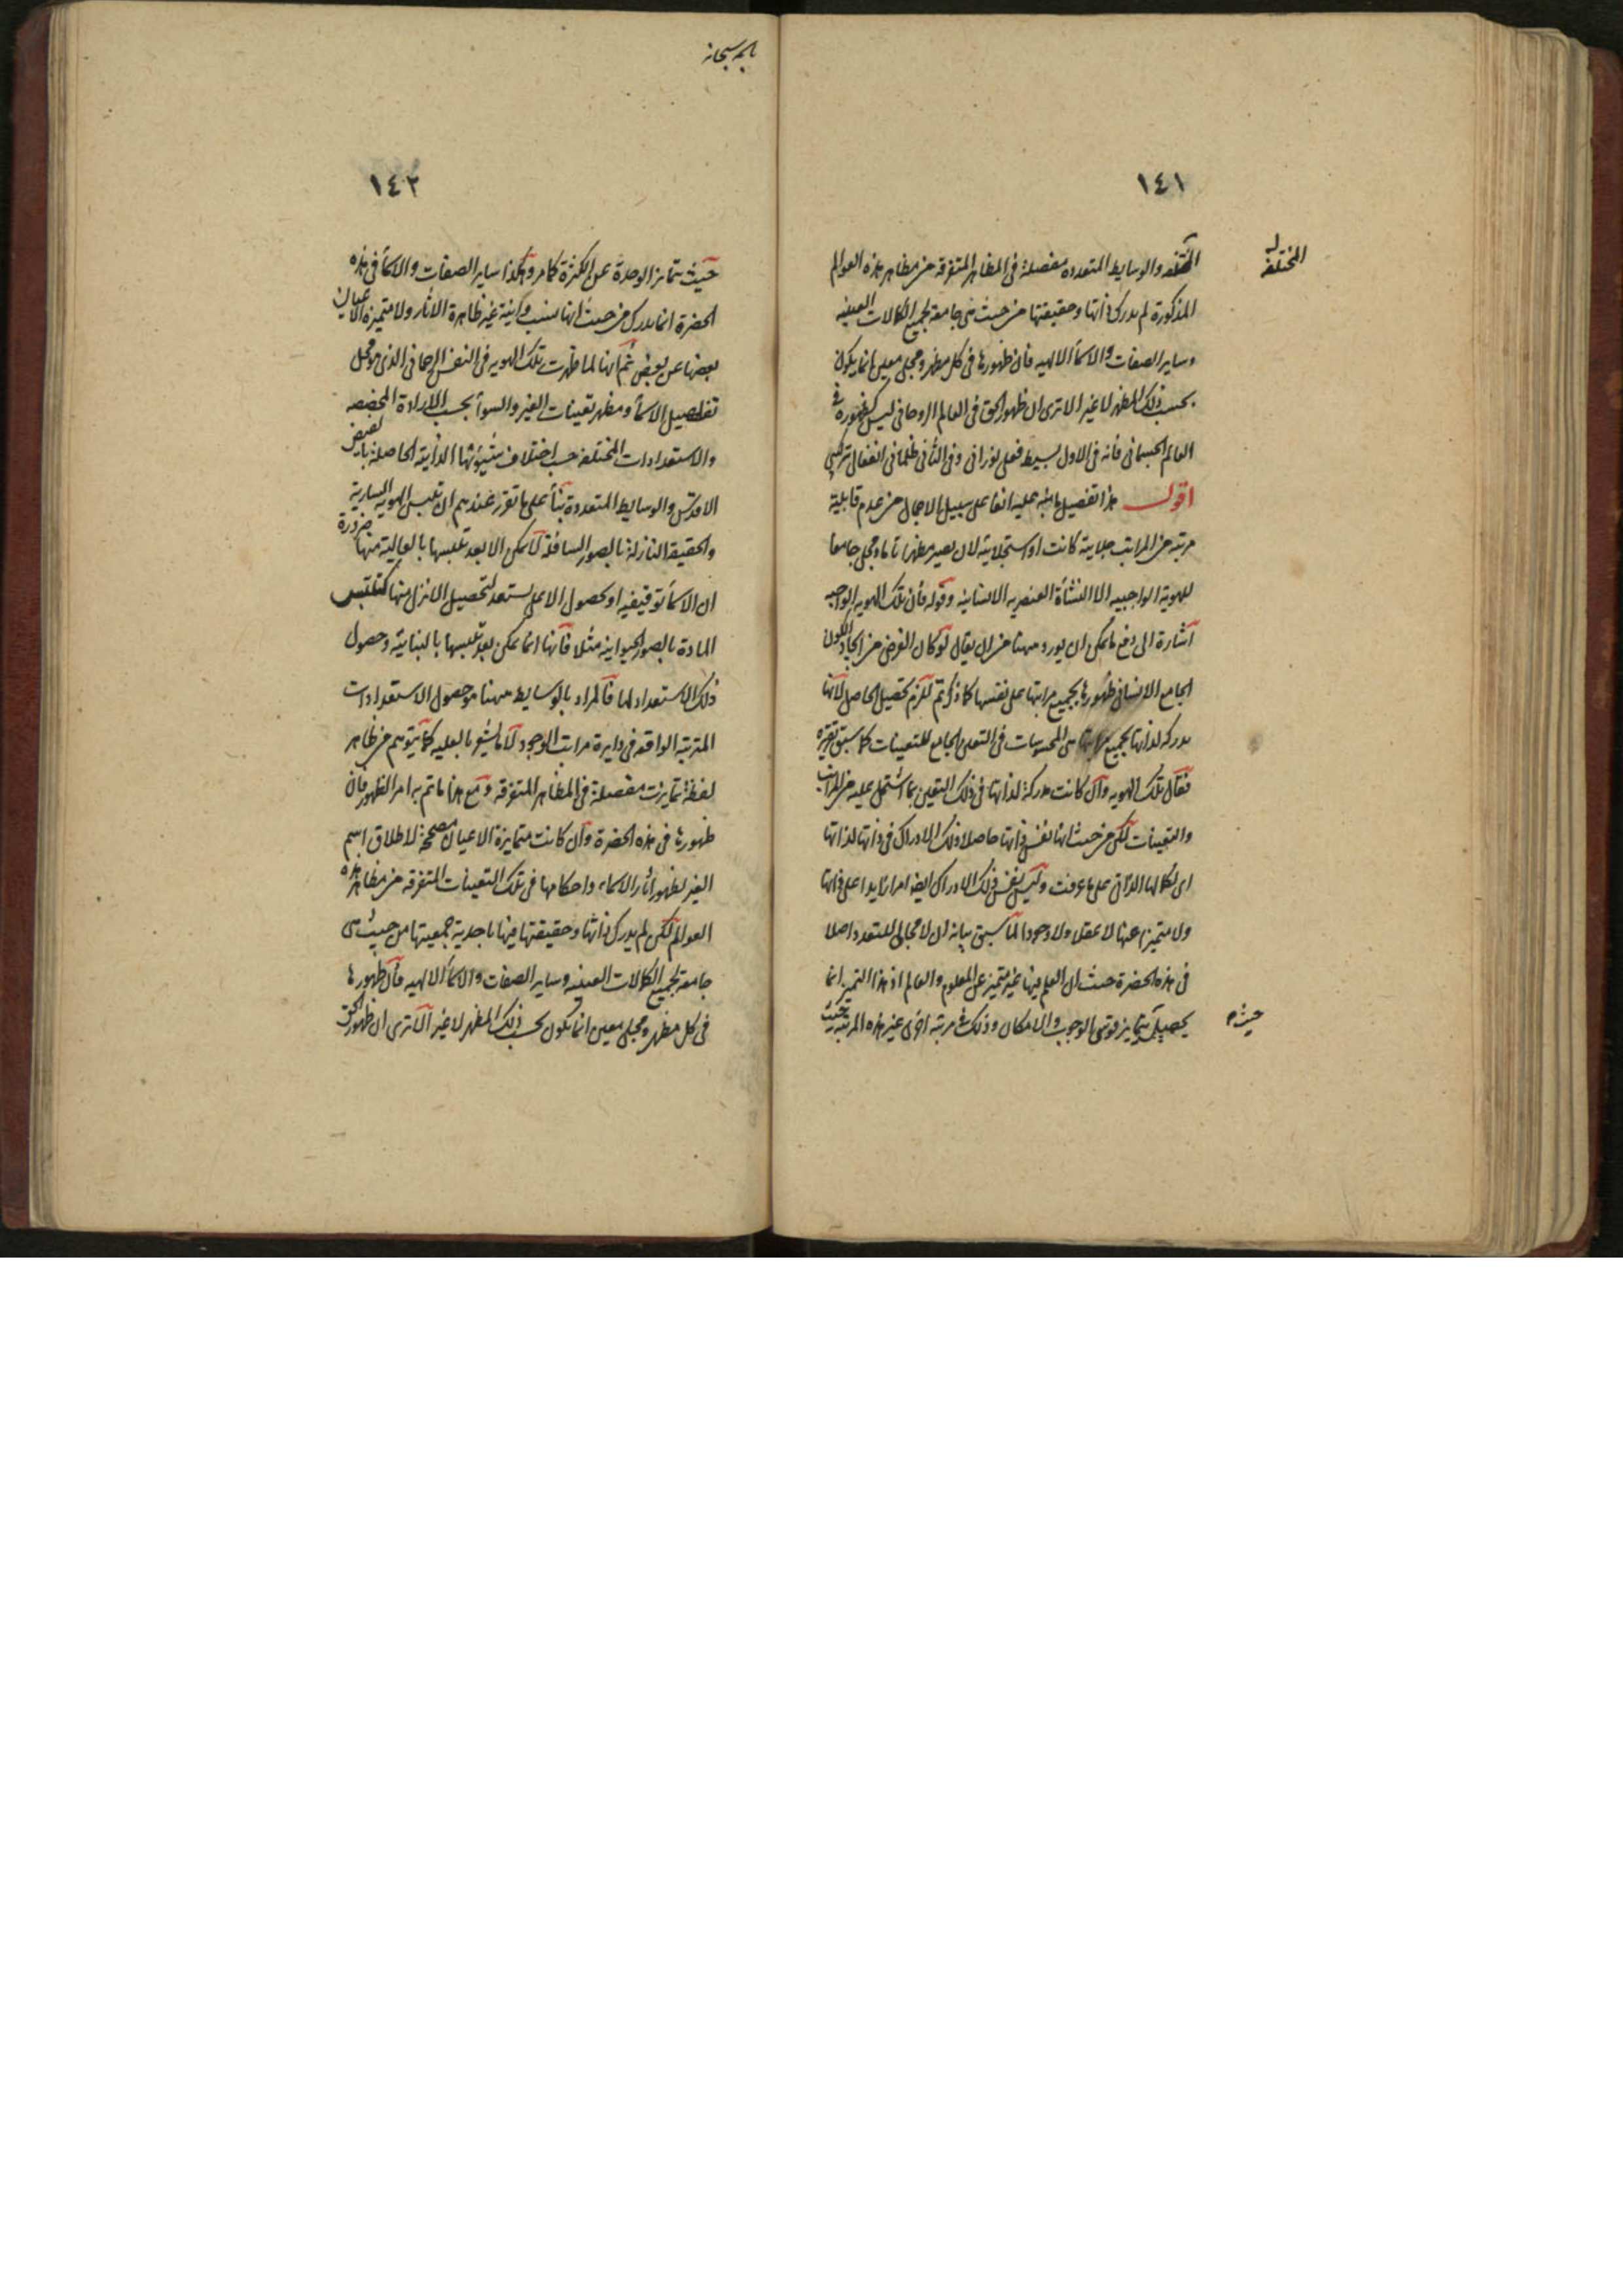 ١٤١
المختلفة
المختلفه والوسايط المتعدده مفصلة فى المظاهر المتفرقه من مظاهر هذه العوالم
المذكورة لم يدرك ذاتها وحقيقتها من حيث هى جامعة لجميع الكمالات العينيه
وساير الصفات والاسمأ الالهيه فان ظهورها فى كل مظهر ومجلى معين انما يكون
بحسب ذلك المظهر لا غير الا ترى ان ظهور الحق فى العالم الروحانى ليس كظهوره فى
العالم الجسمانى فأنه فى الاول بسيط فعلى نورانى وفى الثانى ظلمانى انفعالى تركيبى
اقول هذا تفصيل ما نبه عليه انفا على سبيل الاجمال من عدم قابلية
مرتبه من المراتب جلايية كانت او استجلايية لان يصير مظهرا تاما ومجلى جامعا
للهوية الواجبيه الا النشأة العنصريه الانسانيه وقوله فأن تلك الهويه الواجبيه
اشارة الى دفع ما يمكن ان يورد ههنا من ان يقال لو كان الغرض من ايجاد الكون
الجامع الانسانى ظهورها بجميع مراتبها على نفسها كما ذكرتم للزم تحصيل الحاصل لأنها
مدركه لذاتها بجميع مراتبها حتى المحسوسات فى التعين الجامع للتعينات كما سبق تقريره
فقال تلك الهويه وان كانت مدركة لذاتها فى ذلك التعين بما اشتمل عليه من المراتب
والتعينات لكن من حيث انها نفس ذاتها حاصلا ذلك الادراك فى ذاتها لذاتها
اى لكمالها الذاتى على ما عرفت وليس نفس ذلك الادراك ايضا امرا زايدا على ذاتها
ولا متميزا عنها لا عقلا ولا وجودا لما سبق بيانه ان لا مجال للتعدد اصلا
فى هذه الحضرة حيث ان العلم فيها غير متميز عن المعلوم والعالم اذ هذا التميز انما
يحصل بتمايز قوسى الوجوب والامكان وذلك فى مرتبة اخرى غير هذه المرتبة
حيث
١٤٢
حيث يتمايز الوحدة عن الكثرة كما مر وهكذا ساير الصفات والاسمأ فى هذه
الحضرة انما يدرك من حيث انها نسب وكاينة غير ظاهرة الاثار ولا متميزة الاعيان
بعضها عن بعض ثم انها لما ظهرت تلك الهويه فى النفس الرحمانى الذى هو محل
تفاصيل الاسمأ ومظهر تعينات الغير والسوأ بحسب الارادة المخصصه
والاستعدادات المختلفة حسب اختلاف شيؤنها الذاتية الحاصلة بالفيض
الاقدس والوسايط المتعددة بنأ على ما تقرر عندهم ان تلبس الهويه السارية
والحقيقه النازلة بالصور السافلة لا يمكن الا بعد تلبسها بالعالية منها ضرورة
ان الاسمأ توقيفيه او بحصول الاعلى يستعد لتحصيل الانزل منها كتلبس
المادة بالصور الحيوانيه مثلا فأنها انما يمكن بعد تلبسها بالنباتية وحصول
ذلك الاستعداد لها فالمراد بالوسايط ههنا هو حصول الاستعدادات
المترتبه الواقعه فى دايرة مراتب الوجود لا ما يشعر بالعليه كما يتوهم من ظاهر
لفظه تمايزت مفصلة فى المظاهر المتفرقه ومع هذا ما تم به امر الظهور فان
ظهورها فى هذه الحضرة وان كانت متمايزة الاعيان مصححة لاطلاق اسم
الغير لظهور اثار الاسماء واحكامها فى تلك التعينات المتفرقه من مظاهر هذه
العوالم لكن لم يدرك ذاتها وحقيقتها فيها باحدية جمعيتها من حيث هى
جامعه لجميع الكمالات العينيه وساير الصفات والاسمأ الالهيه فأن ظهورها
فى كل مظهر ومجلى معين انما يكون بحسب ذلك المظهر لا غير الا ترى ان ظهور الحق